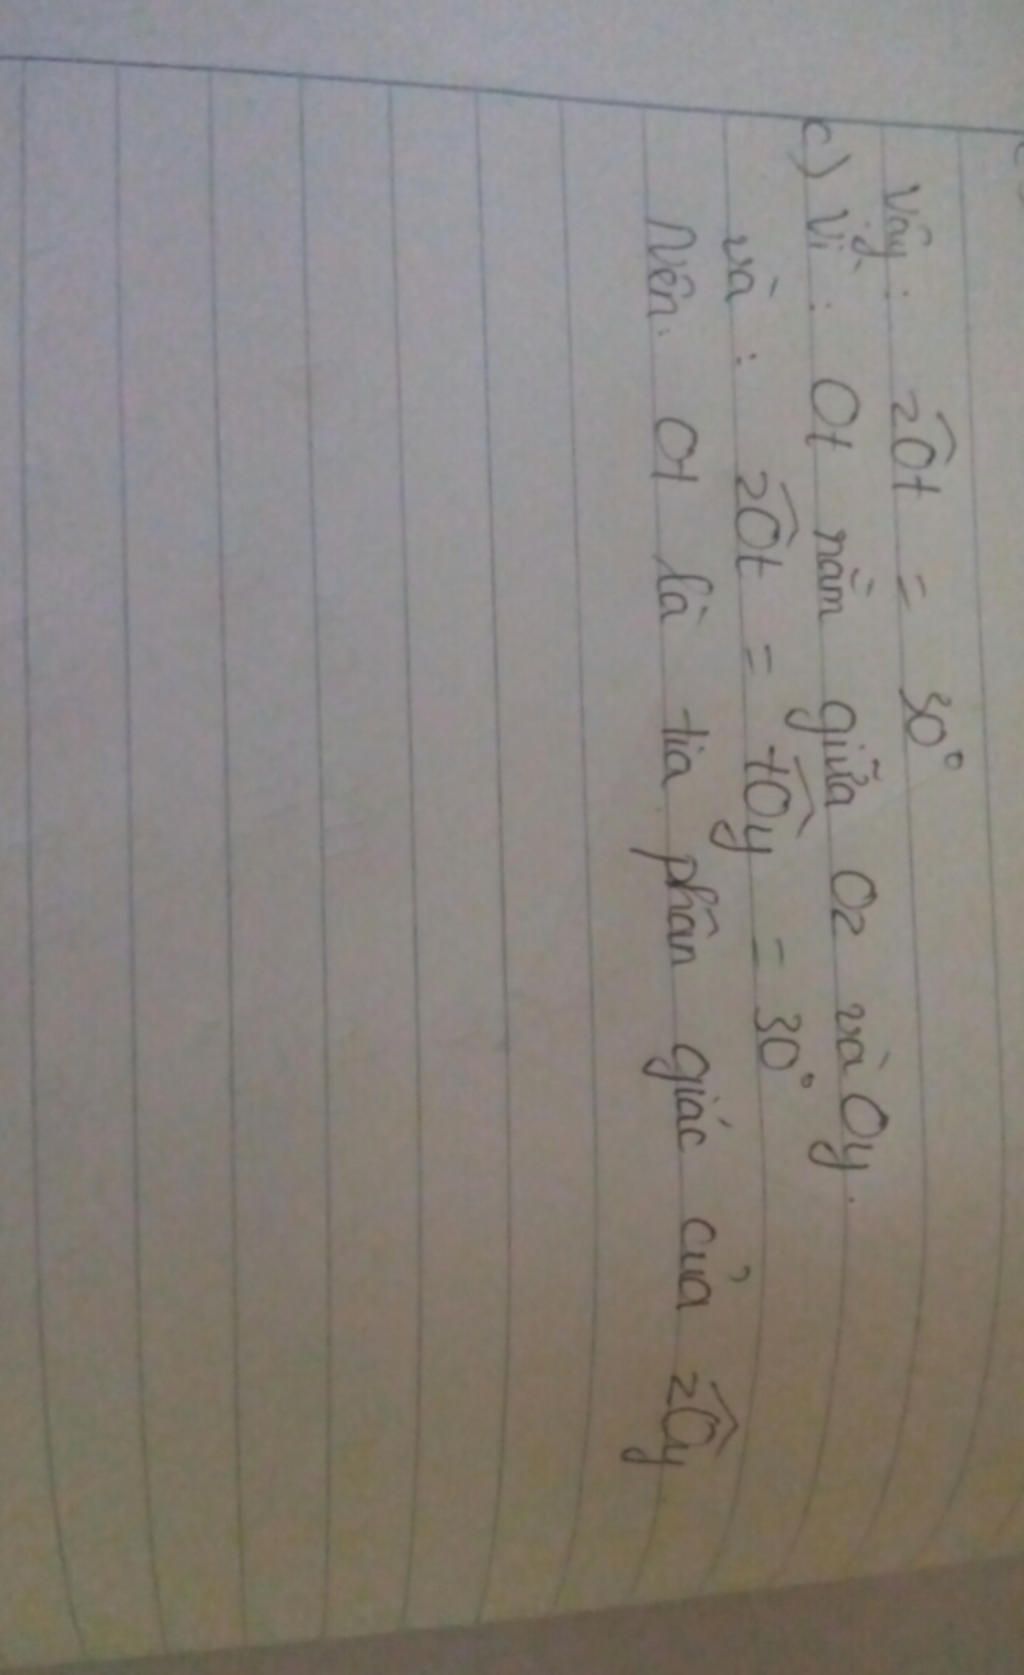 Vậy: zÔt = 30°
c) Vì: Ot nằm giữa Oz và Oy.
và: zÔt = tÔy = 30°
Nên: Ot là tia phân giác của zÔy